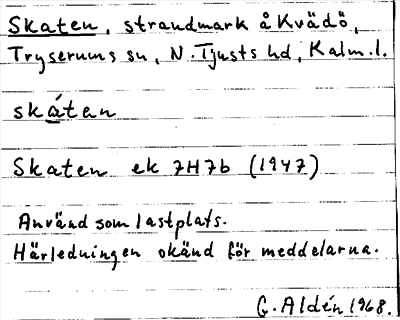 Skaten, strandmark å Kvädö,
Tryserums sn, N. Tjusts hd, Kalm. l.
skáten
Skaten ek 7H7b (1947)
Använd som lastplats.
Härledningen okänd för meddelarna.
G. Aldén 1968.